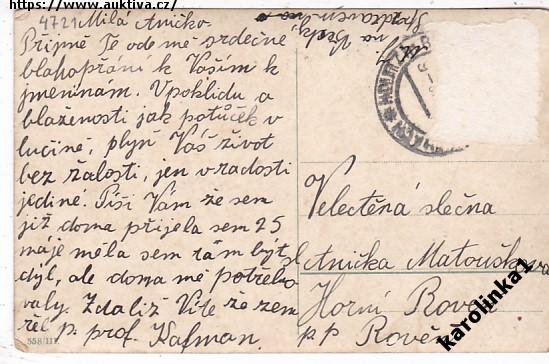 https://www.auktiva.cz/
4721 Milá Aničko
Přijmě Te ode mě srdečné
blahopřání k Vašim k
jmeninám. V poklidu a
blaženosti jak potůček v
lučině, plyň Váš život
bez žalosti, jen v radosti
jedině. Píši Vám že sem
již doma přijela sem 25
máje měla sem tam být
dýl, ale doma mě potřebo
valy. Zdaliž Víte že zem
řel p. prof. Kafman.
558/III.
Velectěná slečna
Anička Matoušk
Horní Rove
p.p Rově
karolinka1